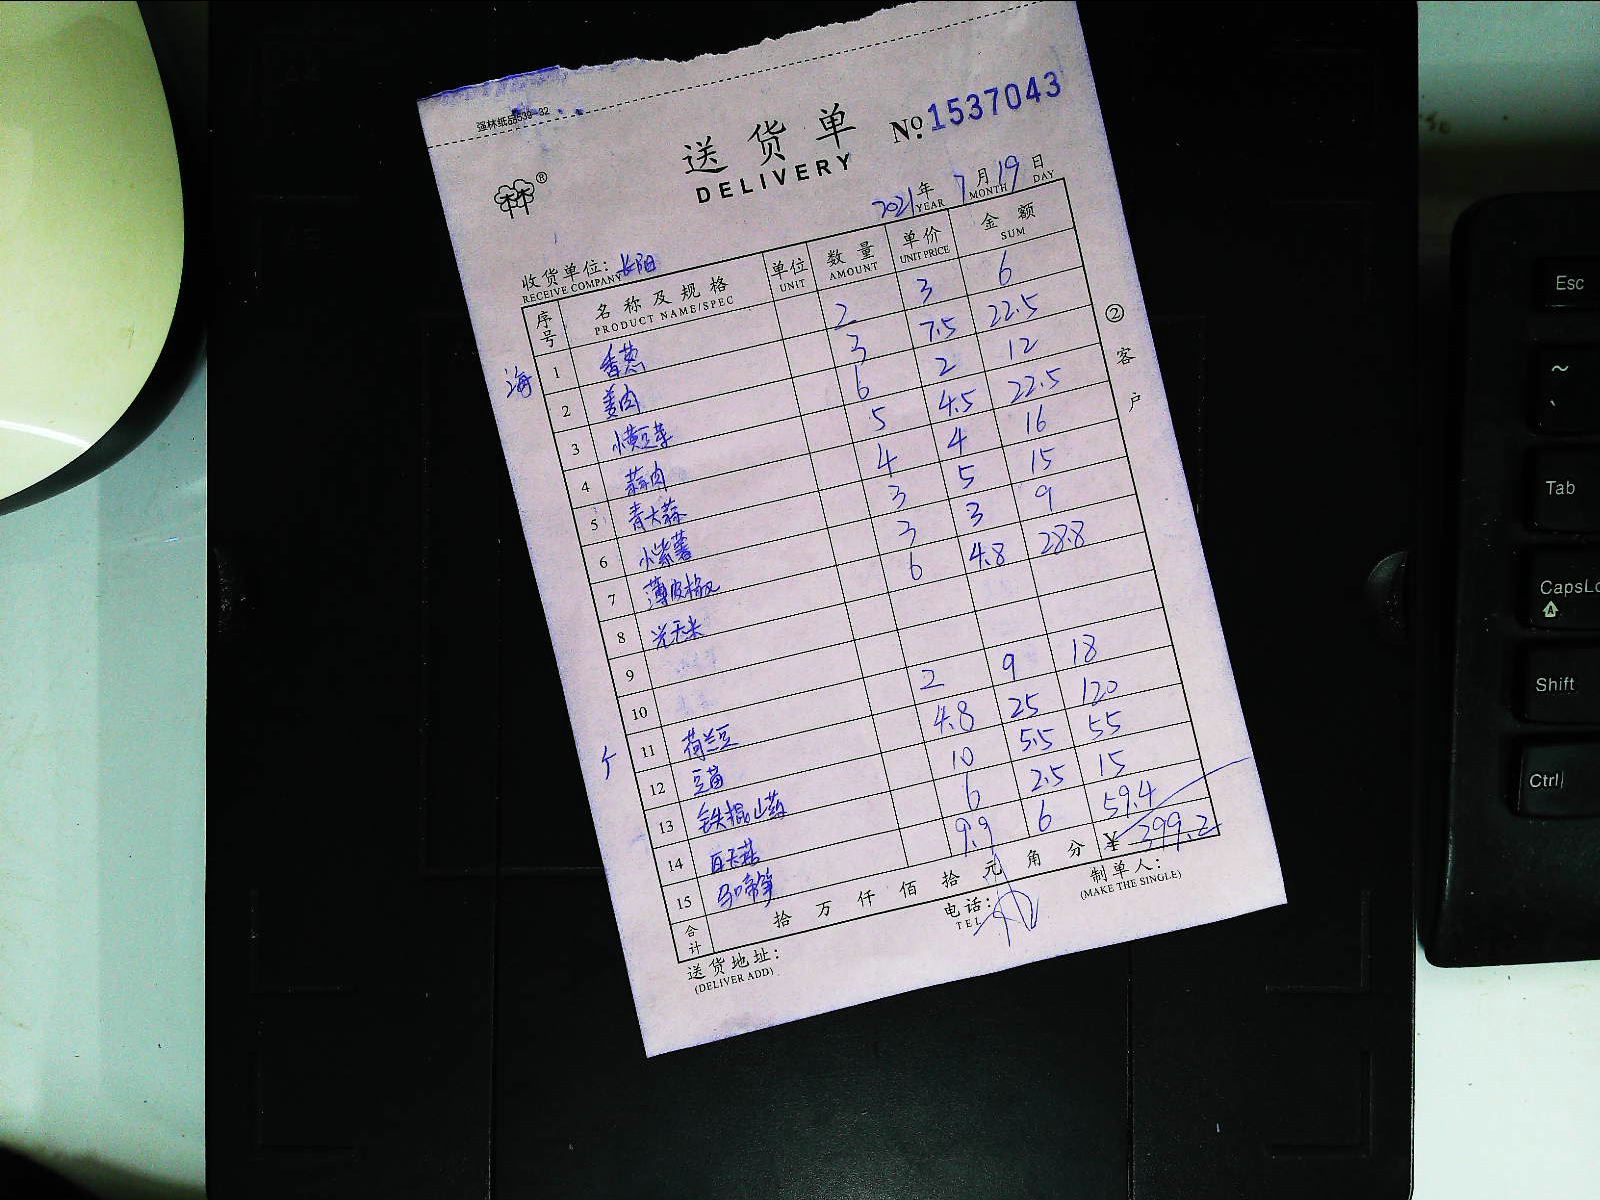 强林纸品539-32
送货单
DELIVERY
No. 1537043
2021年 7月 19日
YEAR MONTH DAY
收货单位: 长阳
RECEIVE COMPANY
序号 名称及规格 单位 数量 单价 金额
PRODUCT NAME/SPEC UNIT AMOUNT UNIT PRICE SUM
海
1 香葱 2 3 6
2 姜肉 3 7.5 22.5
3 小黄豆芽 6 2 12
4 蒜肉 5 4.5 22.5
5 青大蒜 4 4 16
6 小紫薯 3 5 15
7 薄皮椒 3 3 9
8 光玉米 6 4.8 28.8
9
10
11 荷兰豆 2 9 18
12 豆苗 4.8 25 120
13 铁棍山药 10 5.5 55
14 6 2.5 15
15 马蹄笋 9.9 6 59.4
合计 拾 万 仟 佰 拾 元 角 分 ¥ 399.2
送货地址:
(DELIVER ADD)
电话:
TEL
制单人:
(MAKE THE SINGLE)
②客户
Esc
~
Tab
CapsLo
A
Shift
Ctrl